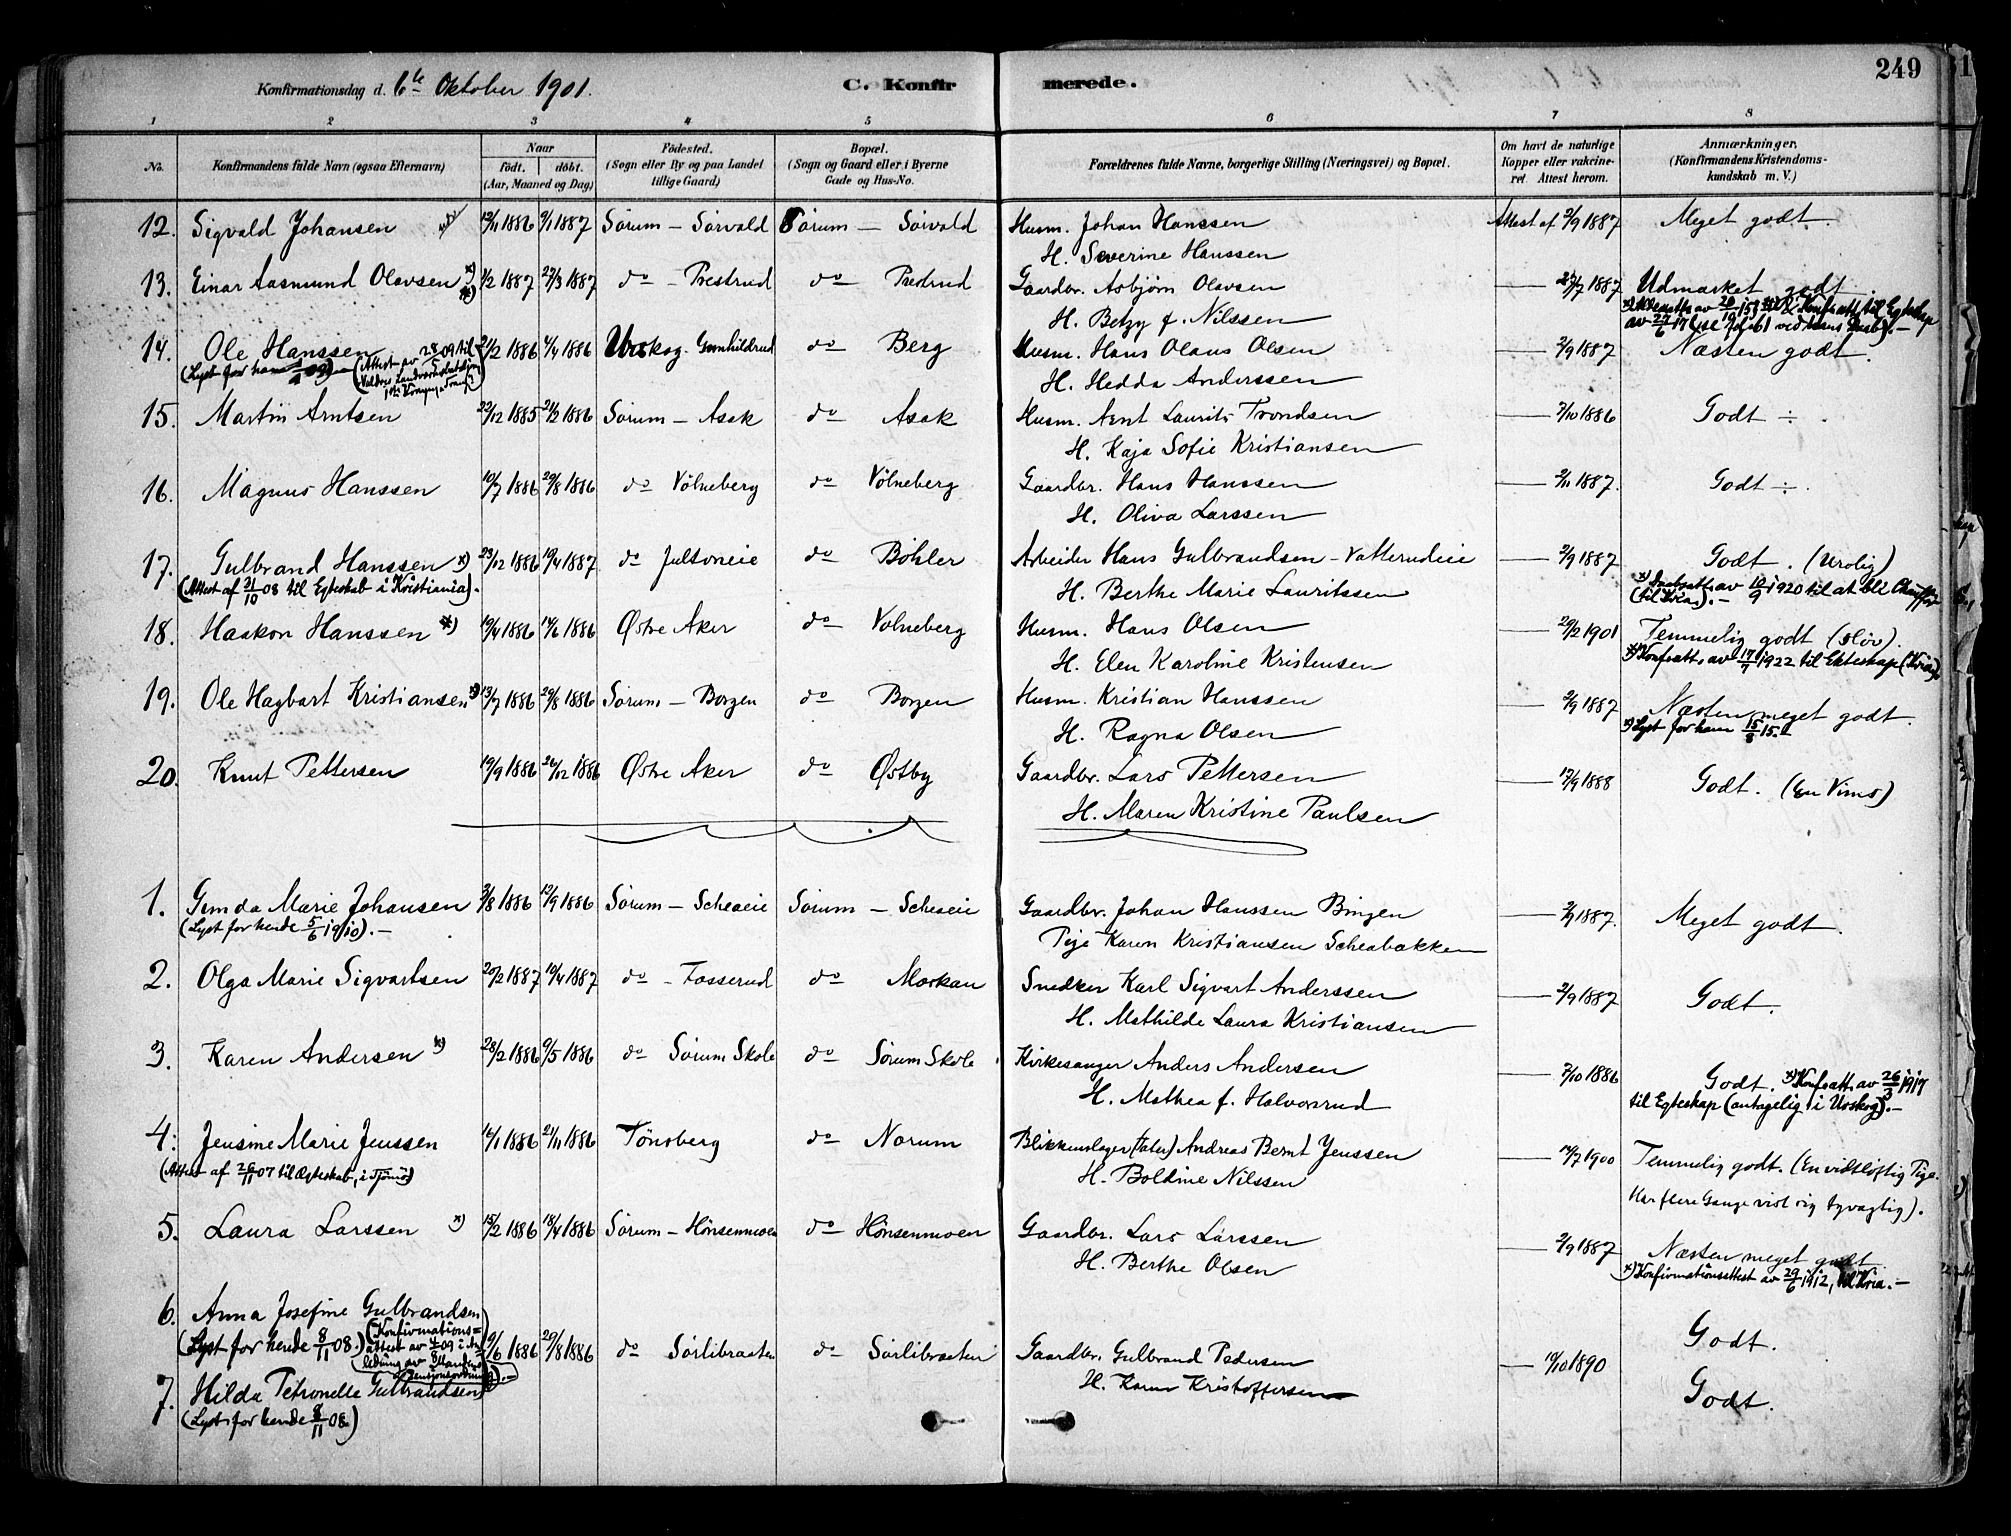 249
Konfirmationsdag d. 6te Oktober 1901. C. Konfirmerede.
1 2 3 4 5 6 7 8
No. Konfirmandens fulde Navn (ogsaa Efternavn) Naar födt. döbt. (Aar, Maaned og Dag) Födested. (Sogn eller By og paa Landet tillige Gaard) Bopæl. (Sogn og Gaard eller i Byerne Gade og Hus-No. Forældrenes fulde Navne, borgerlige Stilling (Næringsvei) og Bopæl. Om havt de naturlige Kopper eller vakcineret. Attest herom. Anmærkninger. (Konfirmandens Kristendomskundskab m. V.)
12. Sigvald Johansen 12/11 1886 9/1 1887 Sørum — Sørvald Sørum — Sørvald Husm. Johan Hanssen Attest af 2/9 1887 Meget godt.
H. Severine Hanssen
13. Einar Aasmund Olavsen x) 1/2 1887 27/3 1887 do - Prestrud do Prestrud Gaardbr. Asbjørn Olavsen — 27/7 1887 Udmærket godt.
H. Betzy f. Nilssen
14. Ole Hanssen 21/2 1886 4/4 1886 Urskog. Gunhildrud do Berg Husm. Hans Olaus Olsen — 2/9 1887 Næsten godt.
H. Hedda Anderssen
15. Martin Arntsen 22/12 1885 21/2 1886 Sørum — Asak do Asak Husm. Arnt Laurits Trondsen — 7/10 1886 Godt ÷.
H. Kaja Sofie Kristiansen
16. Magnus Hanssen 10/7 1886 29/8 1886 do Vølneberg do Vølneberg Gaardbr. Hans Hanssen — 2/11 1887. Godt ÷.
H. Oliva Larssen
17. Gulbrand Hanssen x) 23/12 1886 10/4 1887 do Jultoneie do Bøhler Arbeider Hans Gulbrandsen - Vatterudeie — 2/9 1887 Godt. (Urolig)
(Attest af 31/10 08 til Egteskab i Kristiania). H. Berthe Marie Lauritssen av 10/9 1920 til at bli
18. Haakon Hanssen x) 10/4 1886 14/6 1886 Østre Aker do Volneberg Husm. Hans Olsen — 20/2 1901 Temmelig godt (sløv).
H. Elen Karoline Kristensen x) Konfatt. av 17/7 1922 til Ekteskap (Kria)
19. Ole Hagbart Kristiansen x) 13/7 1886 29/8 1886 Sørum — Borgen do Borgen Husm. Kristian Hanssen — 2/9 1887 Næsten meget godt.
H. Ragna Olsen x) Lyst for ham 15/8 15.
20. Knut Pettersen 19/9 1886 26/12 1886 Østre Aker do Østby Gaardbr. Lars Pettersen — 17/9 1888 Godt. (En Vims)
H. Maren Kristine Paulsen
1. Gunda Marie Johansen 3/8 1886 12/9 1886 Sørum — Scheaeie Sørum — Scheaeie Gaardbr. Johan Hanssen Bingen — 2/9 1887. Meget godt.
(Lyst for hende 5/6 1910).— Pige Karen Kristiansen Scheabakken
2. Olga Marie Sigvartsen 20/2 1887 10/4 1887 do - Fosserud do Morkau Snedker Karl Sigvart Anderssen — 2/9 1887 Godt.
H. Mathilde Laura Kristiansen
3. Karen Andersen x) 28/2 1886 9/5 1886 do Sørum Skole do Sørum Skole Kirkesanger Anders Andersen — 7/10 1886 Godt. x) Konfatt. av 26/3 1917
H. Mathea f. Halvorsrud til Egteskap (antagelig i Urskog).—
4. Jensine Marie Jenssen 14/1 1886 21/11 1886 Tönsberg do Norum Blikkenslager (tater) Andreas Bernt Jenssen — 14/7 1900 Temmelig godt. (En vidtløftig Pige.
(Attest af 26/11 07 til Ægteskab, i Tjømø) H. Boldine Nilssen Har flere Gange vist sig tyvagtig).
5. Laura Larssen x) 15/2 1886 18/4 1886 Sørum — Hønsenmoen do Hønsenmoen Gaardbr. Lars Larssen — 2/9 1887 Næsten meget godt.
H. Berthe Olsen x) Konfirmationsattest av 29/6 1912, til Kria.—
6. Anna Josefine Gulbrandsen Godt.
(Lyst for hende 8/11 08.) 9/6 1886 29/8 1886 do Sørlibraaten do Sørlibraaten Gaardbr. Gulbrand Pedersen — 10/10 1890
7. Hilda Petronelle Gulbrandsen H. Karen Kristoffersen Godt.
(Lyst for hende 8/11 08.)